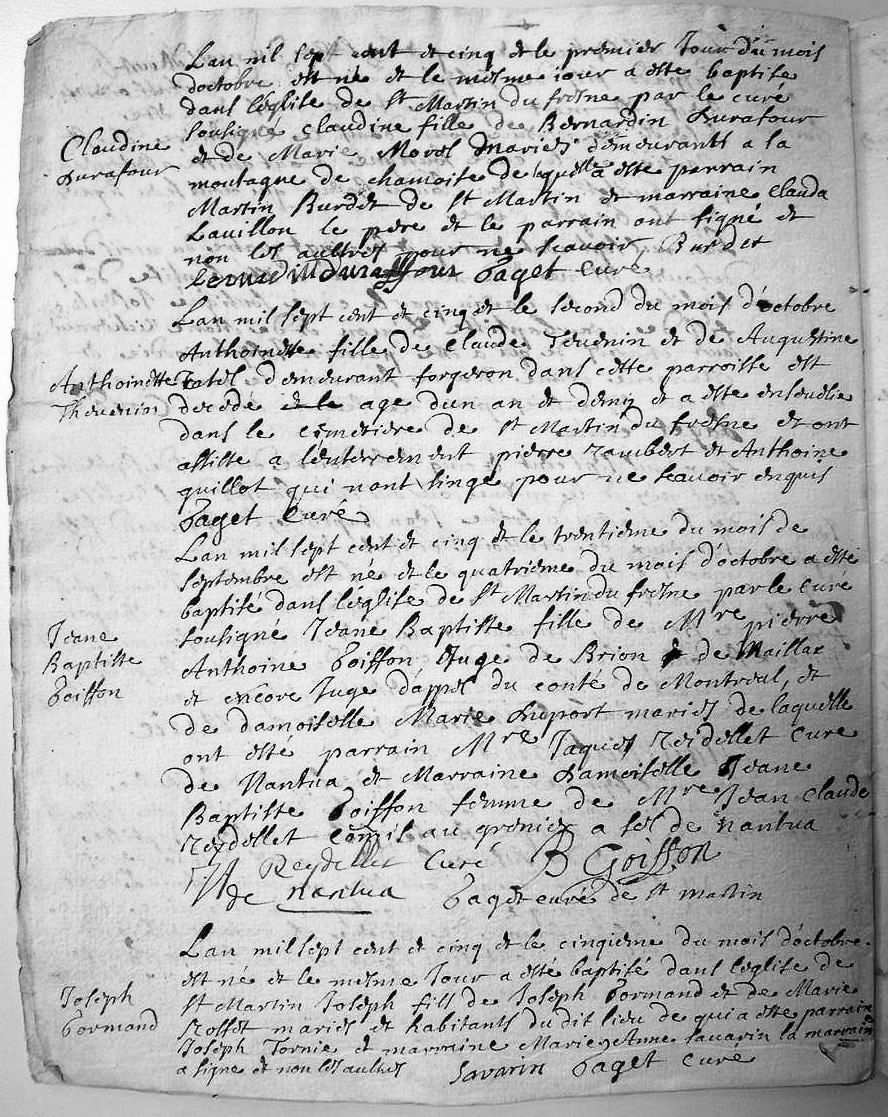 Lan mil sept cent et cinq et le premier Jour du mois
doctobre est né et le mesme jour a esté baptisé
dans l'eglise de St Martin du fresne par le curé
Claudine
Durafour
sousigné Claudine fille de Bernardin Durafour
et de Marie Morel mariés demeurants a la
montagne de chamoise de laquelle a esté parrain
Martin Burdet de St Martin et marraine Clauda
Lavillon le pere et le parrain ont signé et
non les aultres pour ne scavoir Burdet
bernardin duraffour Paget Curé
Lan mil sept cent et cinq et le second du mois d'octobre
Anthoinette fille de Claude Tevenin et de Augustine
Anthoinette
Thevenin
demeurant forgeron dans cette parroisse est
decede age d'un an et demy et a esté ensevelie
dans le cemetiere de St Martin du fresne et ont
assisté a l'enterrement pierre rambert et Anthoine
quillot qui nont singe pour ne scavoir enquis
Paget Curé
Lan mil sept cent et cinq et le trentieme du mois de
septembre est né et le quatrieme du mois d'octobre a esté
baptisé dans l'eglise de St Martin du fresne par le curé
Jeane
Baptiste
Goiffon
sousigné Jeane Baptiste fille de Mre pierre
Anthoine Goiffon, Juge de Brion de Maillat
et encore Juge dappel du conté de Montreal, et
de damoiselle Marie Duport mariés de laquelle
ont esté parrain Mre Jaques Reydellet Curé
de Nantua et Marraine Damoiselle Jeane
Baptiste Goiffon femme de Mre Jean Claude
Reydellet Comis au grenier a sel de nantua
Reydellet Curé B Goiffon
de nantua Paget curé de St martin
Lan mil sept cent et cinq et le cinqieme du mois d'octobre
est né et le mesme Jour a esté baptisé dans l'eglise de
Joseph
Gormand
St Martin Joseph fils de Joseph Gormand et de Marie
Rosset mariés et habitants du dit lieu de qui a esté parrain
Joseph Tornie et marraine Marie Anne Savarin la marraine
a signé et non les aultres Savarin Paget Curé